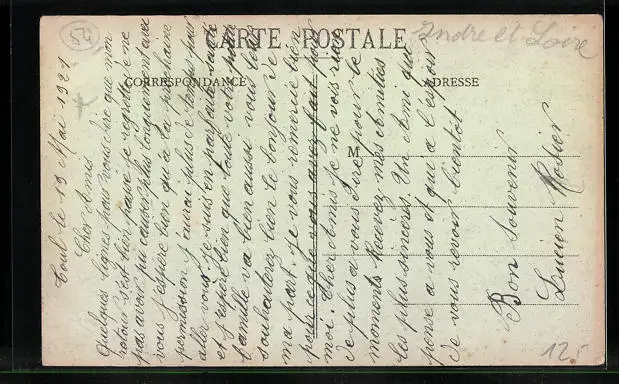 54
Indre et Loire
CARTE POSTALE
CORRESPONDANCE
ADRESSE
M
Toul le 19 Mai 1921
Cher Amis
Quelques lignes pour vous dire que mon
retour s'est bien passé je regrette de ne
pas avoir pu causer plus longuement avec
vous j'espère bien qu'a la prochaine
permission j'aurai plus de temps pour
aller vous je suis en parfaite santé
et j'espère bien que toute votre petite
famille va bien aussi vous leur
souhaiterez bien le bonjour de
ma part. Je vous remercie bien
pour ce que vous avez fait pour
moi. Cher Amis je ne vois rien
de plus a vous dire pour le
moment. Recevez mes Amitiés
les plus sincères. Un Ami qui
pense a vous et qui a l'espoir
de vous revoir bientôt
Bon Souvenir
Lucien
12.-